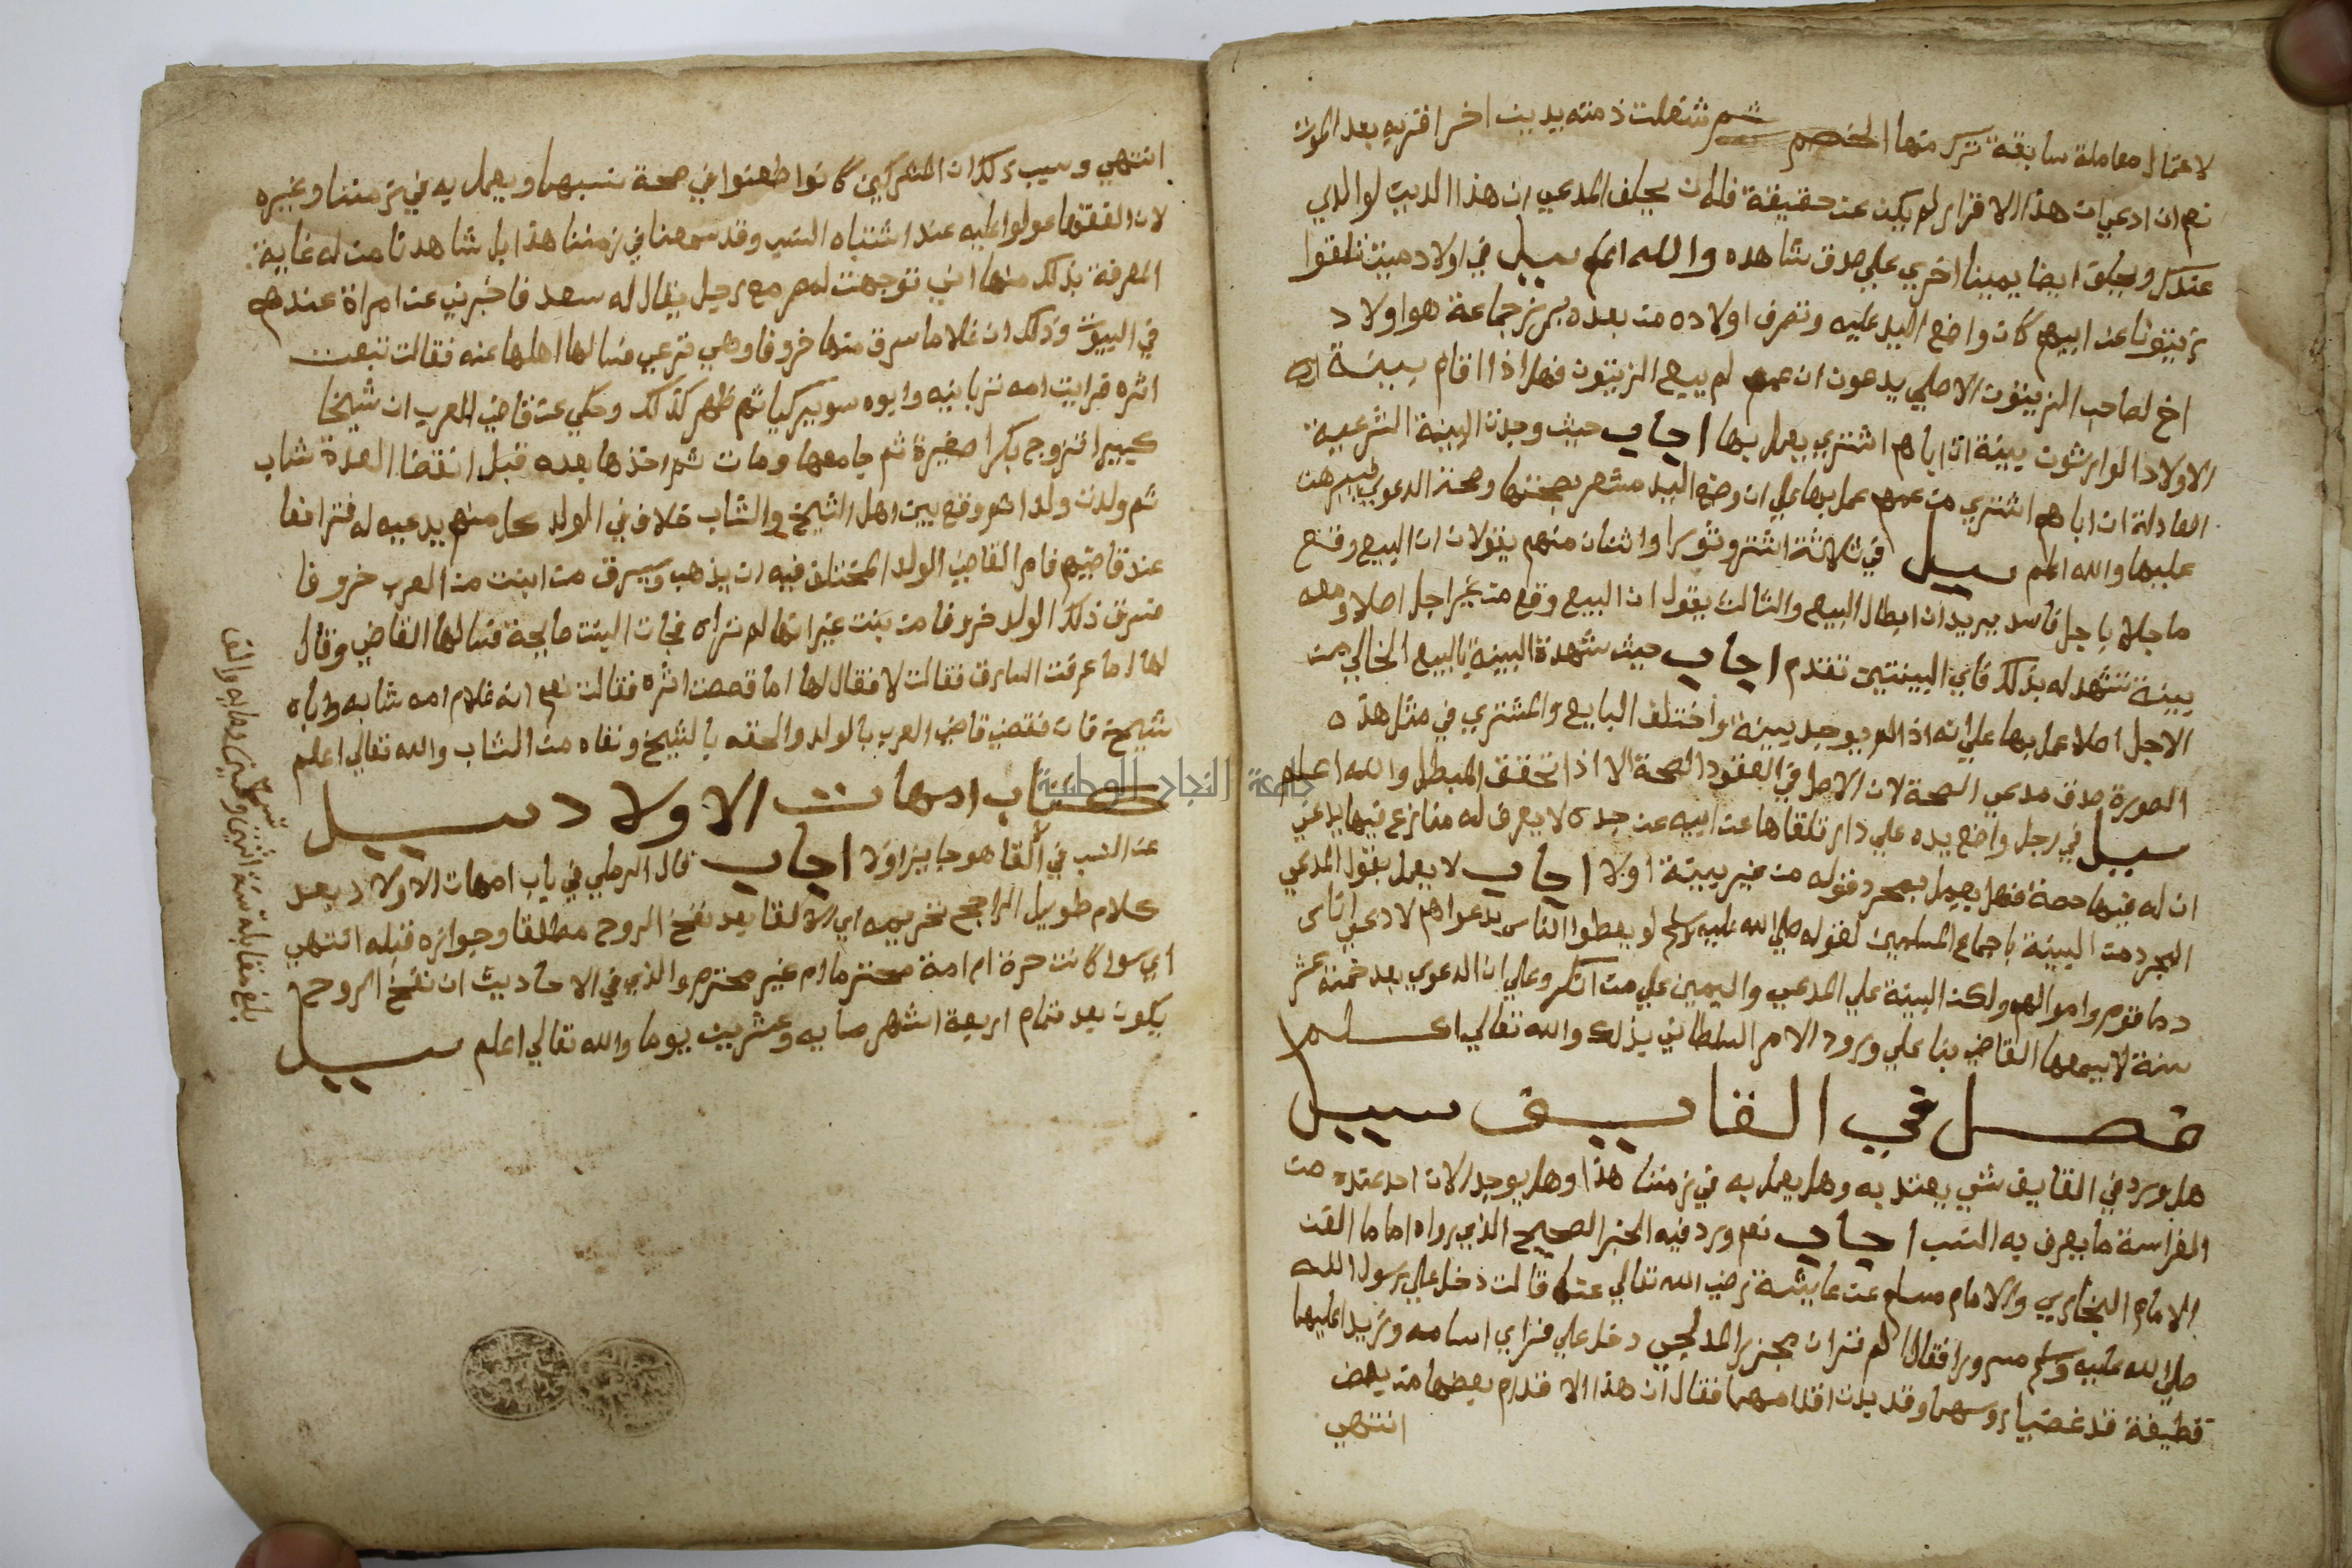 لاحتمال معاملة سابقة تركه منها الخصم ثم شغلت ذمته بدين اخر اقر به بعد الموت
نعم ان ادعي ان هذا الاقرار لم يكن عن حقيقة فله ان يحلف المدعي ان هذا الدين لوالدي
عندك ويحلف ايضا يمينا اخري علي صدق شاهده والله اعلم سيل في اولاد ميت تلقوا
زيتونا عن ابيهم كان واضع اليد عليه وتصرف اولاده من بعده جماعة هو اولاد
اخ لصاحب الزيتون الاصلي يدعون ان عمهم لم يبيع الزيتون فهل اذا اقام بينة
الاولاد الوارثون بينة ان اباهم اشتري يعمل بها اجاب حيث وجدت البينة الشرعية
العادلة ان اباهم اشتري من عمهم عمل بها علي ان وضع اليد مشعر بصحتها وصحة الدعوي
عليها والله اعلم سيل في ثلاثة اشتروا ثورا واثنان منهم يقولان ان البيع وقع
ماجلا باجل فاسد يريدان ابطال البيع والثالث يقول ان البيع وقع من غير اجل اصلا ومعه
بينة تشهد له بذلك فاي البينتين تقدم اجاب حيث شهدة البينة بالبيع الخالي من
الاجل اصلا عمل بها علي انه اذا لم يوجد بينة واختلف البايع والمشتري في مثل هذه
الصورة صدق مدعي الصحة لان الاصل في العقود الصحة الا اذا تحقق المبطل والله اعلم
سيل في رجل واضع يده علي دار تلقاها عن ابيه عن جده لا يعرف له منازع فيها يدعي
ان له فيها حصة فهل يعمل بمجرد قوله من غير بينة اولا اجاب لا يعمل بقول المدعي
المجرد من البينة باجماع المسلمين لقوله صلي الله عليه وسلم لو يعطوا الناس بدعواهم لادعي اناس
دما قوم واموالهم ولكن البينة علي المدعي واليمين علي من انكر وعلي ان الدعوي بعد خمسة عشر
سنة لا يسمعها القاضي بنا علي ورود الامر السلطاني بذلك والله تعالي اعلم
فصل في القايف سيل
هل ورد في القايف شي يعتد به وهل يعمل به في زمننا هذا وهل يوجد الان احد عنده من
الفراسة ما يعرف به النسب اجاب نعم ورد فيه الخبر الصحيح الذي رواه اماما الفن
الامام البخاري والامام مسلم عن عايشة رضي الله تعالي عنها قالت دخل علي رسول الله
صلي الله عليه وسلم مسرورا فقال الم تر ان مجزز المدلجي دخل علي فراي اسامه وزيد عليهما
قطيفة قد غضيا روسهما وقد بدت اقدامهما فقال ان هذا الاقدام بعضها من بعض
انتهي
انتهي وسبب ذلك ان المشركين كانوا طعنوا في صحة نسبهما ويعمل به في زمننا وغيره
لان الفقها عولوا عليه عند اشتباه النسب وقد سمعنا في زمننا هذا بل شاهدنا من له غاية
المعرفة بذلك منها اني توجهت لمصر مع رجل يقال له سعد فاخبرني عن امراة عندهم
في البيوت وذلك ان غلاما سرق منها خروفا وهي ترعي فسالها اهلها عنه فقالت تبعت
اثره فرايت امه وابوه ثم ظهر كذلك وحكي عن قاضي العرب ان شيخا
كبيرا تزوج بكرا صغيرة ثم جامعها ومات ثم اخذها بعده قبل انقضا العدة شاب
ثم ولدت ولدا ثم وقع بين اهل الشيخ والشاب خلاف في الولد كل منهم يدعيه له فترافعا
عند قاضيهم فامر القاضي الولد المختلف فيه ان يذهب ويسرق من ابنت من العرب خروفا
فسرق ذلك الولد خروفا من بنت غير انها لم تراه فجات البنت صايحة فسالها القاضي وقال
لها اما عرفت السارق فقالت لا فقال لها اما قصصت اثره فقالت نعم انه غلام امه شابه واباه
شيخ فان فقضي قاضي العرب بالولد والحقه بالشيخ ونفاه من الشاب والله تعالي اعلم
كتاب امهات الاولاد سيل
عن التسبب في القا هو جايز اولا اجاب قال الرملي في باب امهات الاولاد بعد
كلام طويل الراجح تحريمه اي الالقا بعد نفخ الروح مطلقا وجوازه قبله انتهي
اي سوا كانت حرة ام امة محترما ام غير محترم والذي في الاحاديث ان نفخ الروح
يكون بعد تمام اربعة اشهر مايه وعشرين يوما والله تعالي اعلم سيل
بلغ مقابلة
جامعة النجاح الوطنية